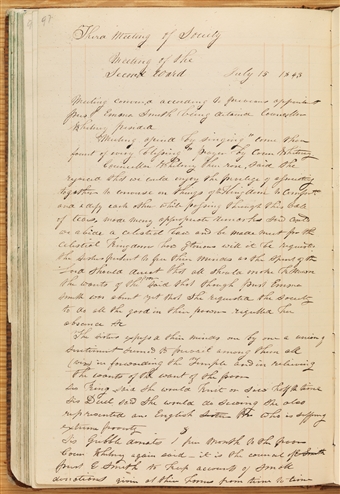 97
Third Meeting of Society
Meeting of the
Second Ward July 18 1843
Meeting convened according to previous appointment
prest Emma Smith being absent Councilor
Whitney presided
Meeting opened by singing "come thou
fount of every blessing" Prayer by Coun Whitney
Councilor Whitney then rose said She
rejoiced that we could enjoy the privilege of assembling
together to converse on things of the Kingdom to comfort
and edify each other while passing through this vale
of tears, made many appropriate remarks said could
we abide a celestial law and be made meet for the
celestial Kingdom how glorious
the Sisters present to their minds as the Spirit of the
Lord should direct that all should
the wants of the said that though prest Emma
Smith was absent yet that She requested the Society
to do all the good in their power regardless her
absence &c
The Sisters express their minds one by one a union
sentiment seemed to prevail among them all
(viz) in forwarding the Temple and in relieving
the wants of the poor
Sis King said she would knit or sew half the time
Sis Duel said She would do sewing she also
represented an English who is suffering
extreme poverty
Sis Grible donates 1 per Month to the poor
Coun Whitney again said it is the council of
prest E Smith to keep account of small
donations given at these times from time to time